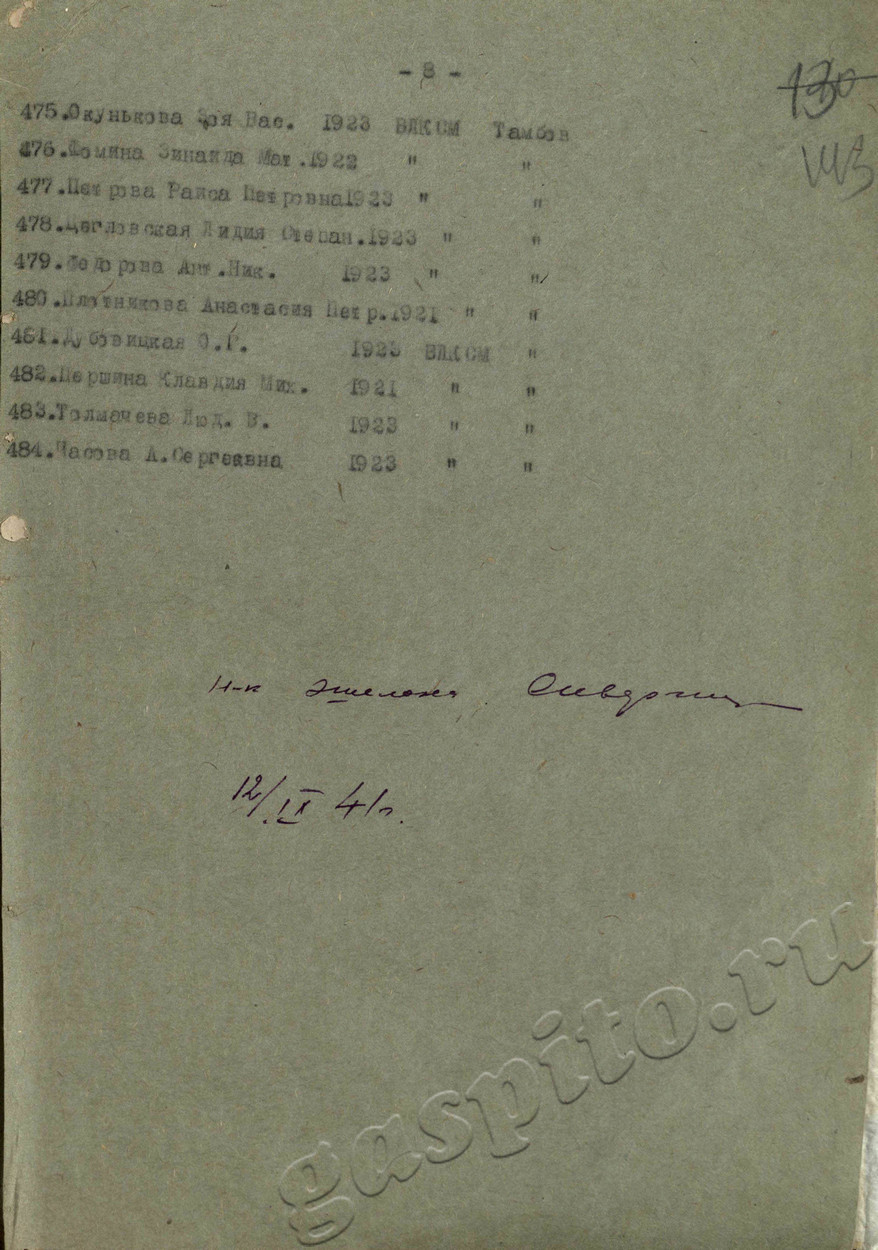 - 8 -
130
475.Окунькова Зоя Вас. 1923 ВЛКСМ Тамбов
476.Фомина Зинаида Мат.1922 " "
477.Петрова Раиса Петровна1923 " "
478.Цегловская Лидия Степан.1923 " "
479.Федорова Ант.Ник. 1923 " "
480.Плотникова Анастасия Петр.1921 " "
481.Дубовицкая О.Г. 1923 ВЛКСМ "
482.Першина Клавдия Мих. 1921 " "
483.Толмачева Люд. В. 1923 " "
484.Часова А.Сергеевна 1923 " "
н-к эшелона
12/IX 41г.
gaspito.ru